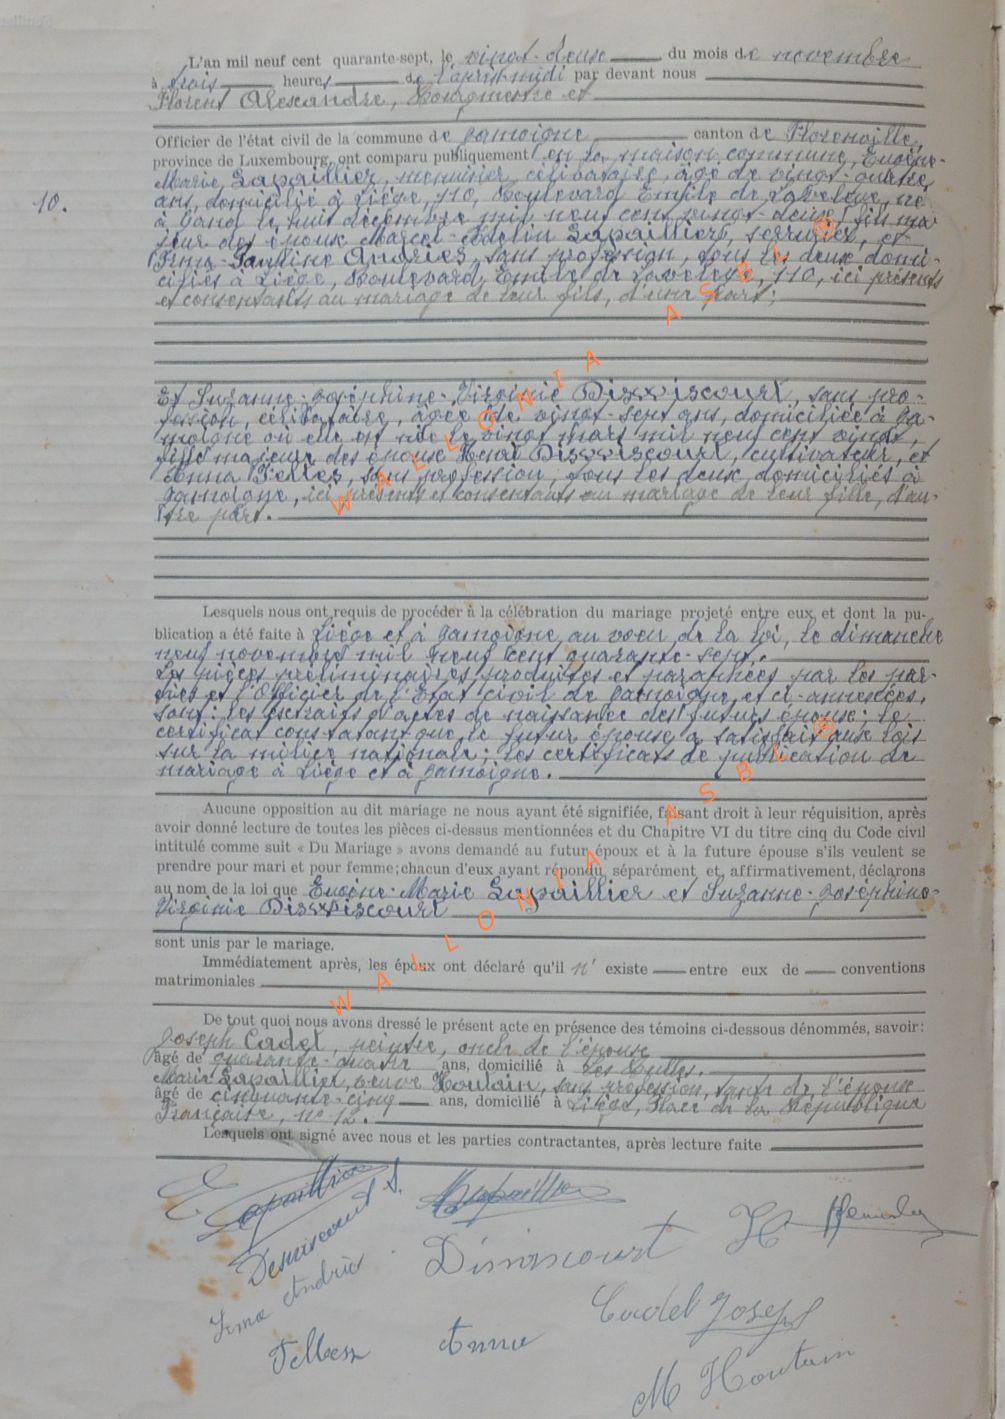 L'an mil neuf cent quarante-sept, le vingt-deux du mois de novembre
à trois heures de l'après-midi par devant nous
Florent Alexandre, Bourgmestre et
Officier de l'état civil de la commune de Jamoigne canton de Florenville,
province de Luxembourg, ont comparu publiquement en la maison commune, Eugène-
10.
Marie Lapaillier, menuisier, célibataire, âgé de vingt-quatre
ans, domicilié à Liège, 110, Boulevard Emile de Laveleye, né
à Gand le huit décembre mil neuf cent vingt-deux, fils ma-
jeur des époux Marcel-Adelin Lapaillier, serrurier, et
Irma-Pauline Andries, sans profession, tous les deux domi-
ciliés à Liège, Boulevard Emile de Laveleye, 110, ici présents
et consentants au mariage de leur fils, d'une part;
Et Suzanne-Joséphine-Virginie Dissviscourt, sans pro-
fession, célibataire, âgée de vingt-sept ans, domiciliée à Ja-
moigne où elle est née le vingt mars mil neuf cent vingt,
fille majeure des époux Henri Dissviscourt, cultivateur, et
Anna Felles, sans profession, tous les deux domiciliés à
Jamoigne, ici présents et consentants au mariage de leur fille, d'au-
tre part.
Lesquels nous ont requis de procéder à la célébration du mariage projeté entre eux et dont la pu-
blication a été faite à Liège et à Jamoigne, au vœu de la loi, le dimanche
neuf novembre mil neuf cent quarante-sept.
Les pièces préliminaires produites et paraphées par les par-
ties et l'Officier de l'Etat civil de Jamoigne et ci-annexées,
sont: les extraits d'actes de naissance des futurs époux; le
certificat constatant que le futur époux a satisfait aux lois
sur la milice nationale; les certificats de publication de
mariage à Liège et à Jamoigne.
Aucune opposition au dit mariage ne nous ayant été signifiée, faisant droit à leur réquisition, après
avoir donné lecture de toutes les pièces ci-dessus mentionnées et du Chapitre VI du titre cinq du Code civil
intitulé comme suit « Du Mariage » avons demandé au futur époux et à la future épouse s'ils veulent se
prendre pour mari et pour femme; chacun d'eux ayant répondu séparément et, affirmativement, déclarons
au nom de la loi que Eugène-Marie Lapaillier et Suzanne-Joséphine-
Virginie Dissviscourt
sont unis par le mariage.
Immédiatement après, les époux ont déclaré qu'il n' existe entre eux de conventions
matrimoniales
De tout quoi nous avons dressé le présent acte en présence des témoins ci-dessous dénommés, savoir:
Joseph Cadet, peintre, oncle de l'épouse
âgé de quarante-quatre ans, domicilié à Les Bulles.
Marie Lapaillier, veuve Houtain, sans profession, tante de l'époux
âgé de cinquante-cinq ans, domicilié à Liège, Place de la République
Française, n° 12.
Lesquels ont signé avec nous et les parties contractantes, après lecture faite
E. Lapaillier
S.
Lapaillier
H
Irma Andries
Cadet Joseph
Anna
M Houtain
WALLONIA ASBL ®
WALLONIA ASBL ®